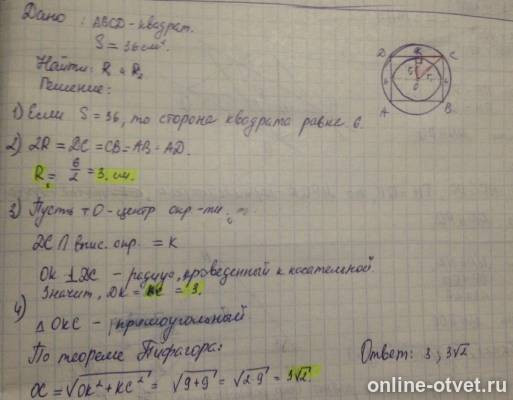 Дано: ABCD - квадрат.
S = 36 см².
Найти: R и R₂
Решение:
D K C
O
A B
1) Если S = 36, то сторона квадрата равна 6.
2) 2R = DC = CB = AB = AD.
R = 6/2 = 3 см.
3) Пусть т O - центр окр-ти
DC ∩ впис. окр. = K
OK ⊥ DC - радиус, проведенный к касательной.
Значит, OK = KC = 3.
4)
△ OKC - прямоугольный
По теореме Пифагора:
OC = √OK² + KC² = √9+9 = √2·9 = 3√2.
Ответ: 3; 3√2
online-otvet.ru